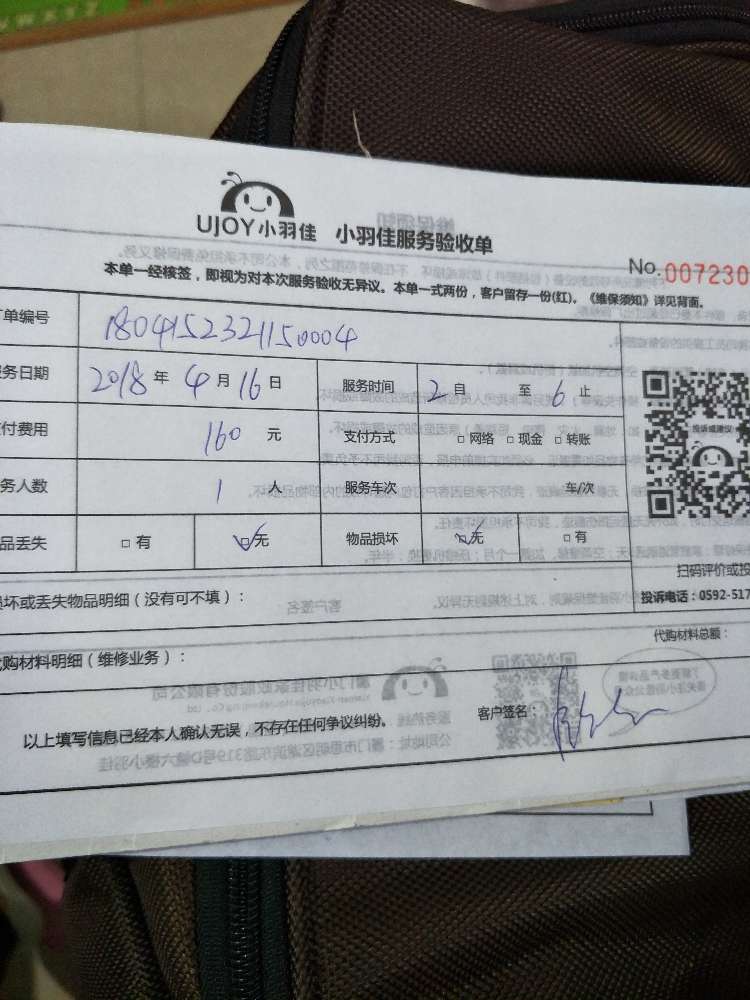 UJOY小羽佳 小羽佳服务验收单
No.007230
本单一经核签，即视为对本次服务验收无异议。本单一式两份，客户留存一份(红)。《维保须知》详见背面。
单编号 1804152321150004
务日期 2018年4月16日 服务时间 2自 至6止
付费用 160元 支付方式 □网络 □现金 □转账
务人数 1人 服务车次 车/次
品丢失 □有 □无 物品损坏 □无 □有
投诉或建议
扫码评价或投
坏或丢失物品明细（没有可不填）：
投诉电话：0592-517
购材料明细（维修业务）：
代购材料总额：
以上填写信息已经本人确认无误，不存在任何争议纠纷。
客户签名：